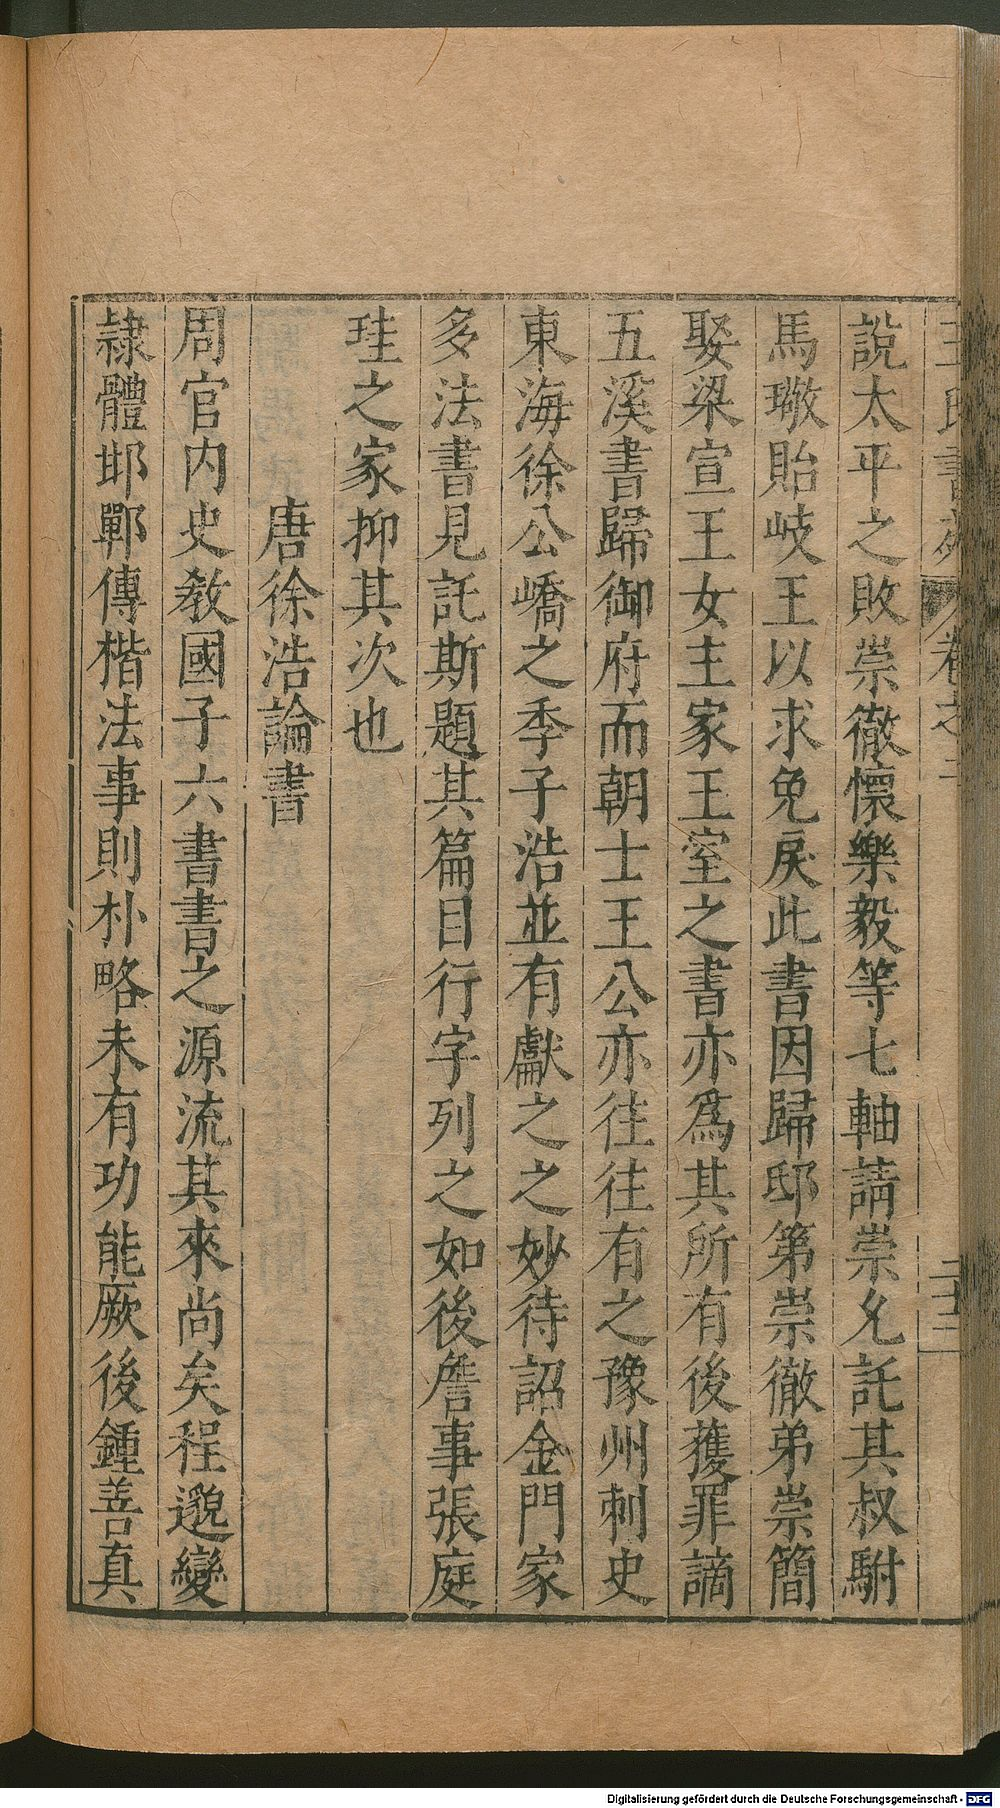 王氏書苑 卷之二 二十二
說太平之敗崇徹懷樂毅等七軸請崇允託其叔駙
馬璥貽岐王以求免戾此書因歸邸第崇徹弟崇簡
娶梁宣王女主家王室之書亦爲其所有後獲罪謫
五溪書歸御府而朝士王公亦往往有之豫州刺史
東海徐公嶠之季子浩並有獻之之妙待詔金門家
多法書見託斯題其篇目行字列之如後詹事張庭
珪之家抑其次也
唐徐浩論書
周官内史敎國子六書書之源流其來尚矣程邈變
隷體邯鄲傳楷法事則朴略未有功能厥後鍾善真
Digitalisierung gefördert durch die Deutsche Forschungsgemeinschaft - DFG